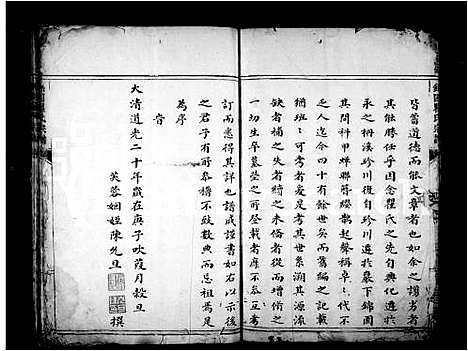 皆蓄道德而能文章者也如余之謭劣者
其能勝任乎因念瞿氏之先自興化遷於
承之栴溪珍川後自珍川遷於象下錦園
其間科甲蟬聯簪纓鵲起聲稱卓卓代不
乏人迄今四十有餘世矣而舊編之記載
猶班班可考者爰是考其世系溯其源流
缺者補之失者續之未備者從而增脩之
一切生卒墓塋之所登載者靡不参互考
訂而悉得其詳也譜成謹書如右以示後
之君子有所考稽不致數典而忘祖者為足
為序
旹
大清道光二十年歲在庚子吹葭月穀旦
芙蓉姻姪陳允旦
撰